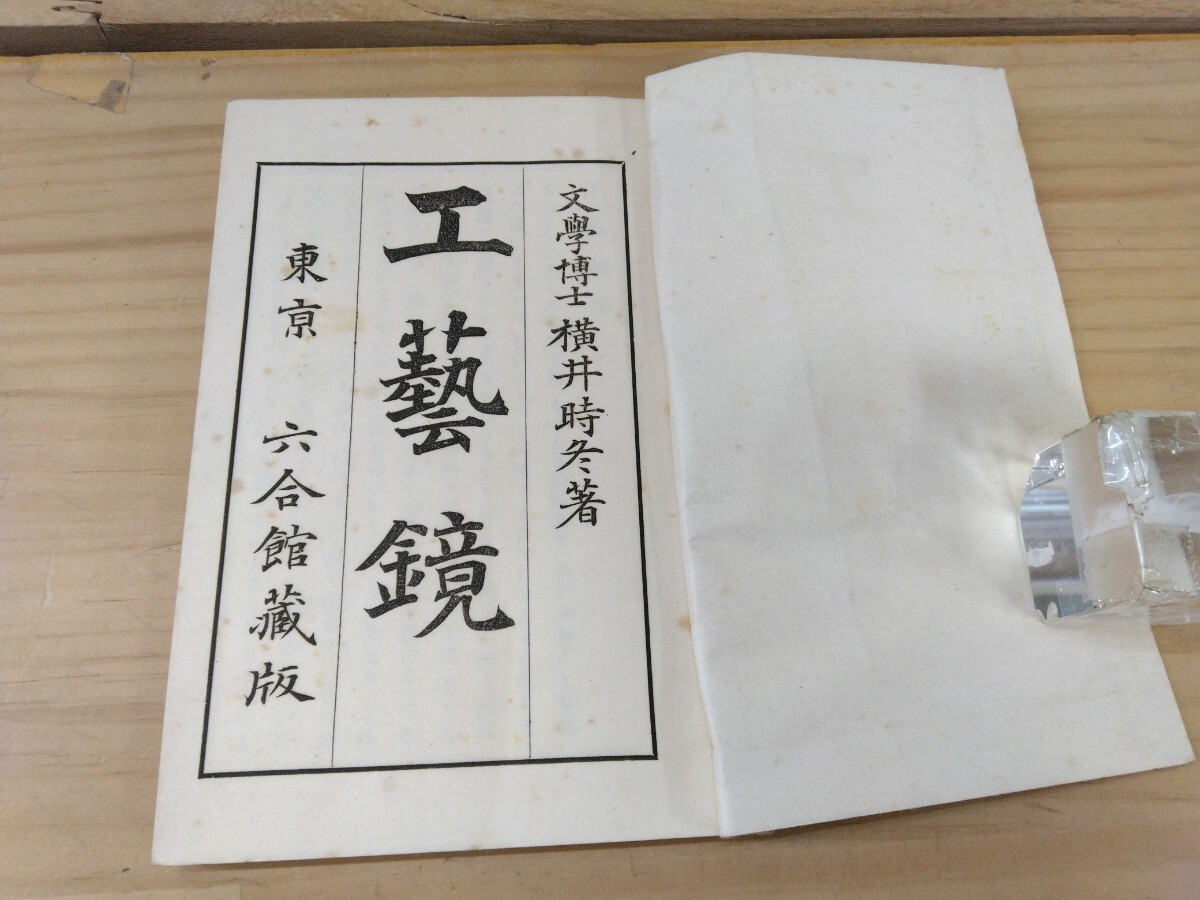 文學博士横井時冬著
工藝鏡
東京 六合館藏版